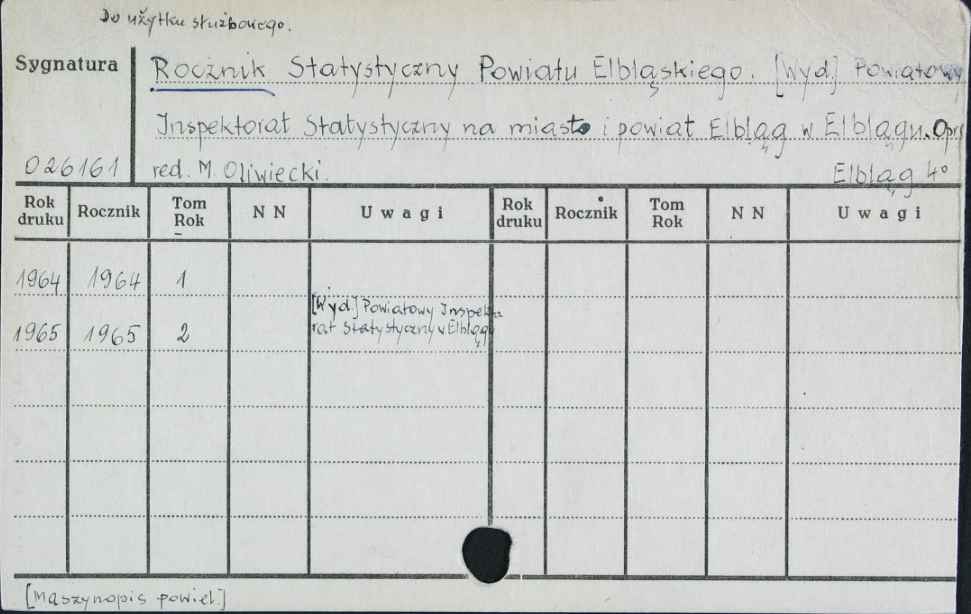 Do użytku służbowego.
Sygnatura
Rocznik Statystyczny Powiatu Elbląskiego. [Wyd] Powiatowy
Inspektorat Statystyczny na miasto i powiat Elbląg w Elblągu. Opr
026161 red. M. Oliwiecki. Elbląg 4°
Rok druku Rocznik Tom Rok N N Uwagi Rok druku Rocznik Tom Rok N N Uwagi
1964 1964 1
[Wyd.] Powiatowy Inspekto
1965 1965 2 rat Statystyczny w Elblągu
[Maszynopis powiel.]